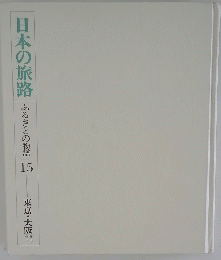 日本の旅路
ふるさとの物語
15
東京・大阪